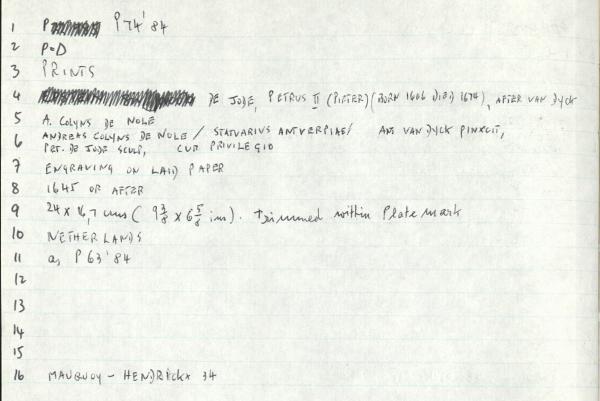 1 P P74'84
2 P=D
3 PRINTS
4 DE JODE, PETRUS II (PIETER) (BORN 1606 DIED 1674), AFTER VAN DYCK
5 A. COLYNS DE NOLE
6 ANDREAS COLYNS DE NOLE / STATUARIUS ANTVERPIAE / ANT VAN DYCK PINXCIT,
PET. DE JODE SCULP, CUP PRIVILEGIO
7 ENGRAVING ON LAID PAPER
8 1645 OR AFTER
9 24 x 16,7 cms ( 9 3/8 x 6 5/8 in). Trimmed within Plate mark
10 NETHERLANDS
11 as P 63'84
12
13
14
15
16 MAUQUOY - HENDRICKX 34